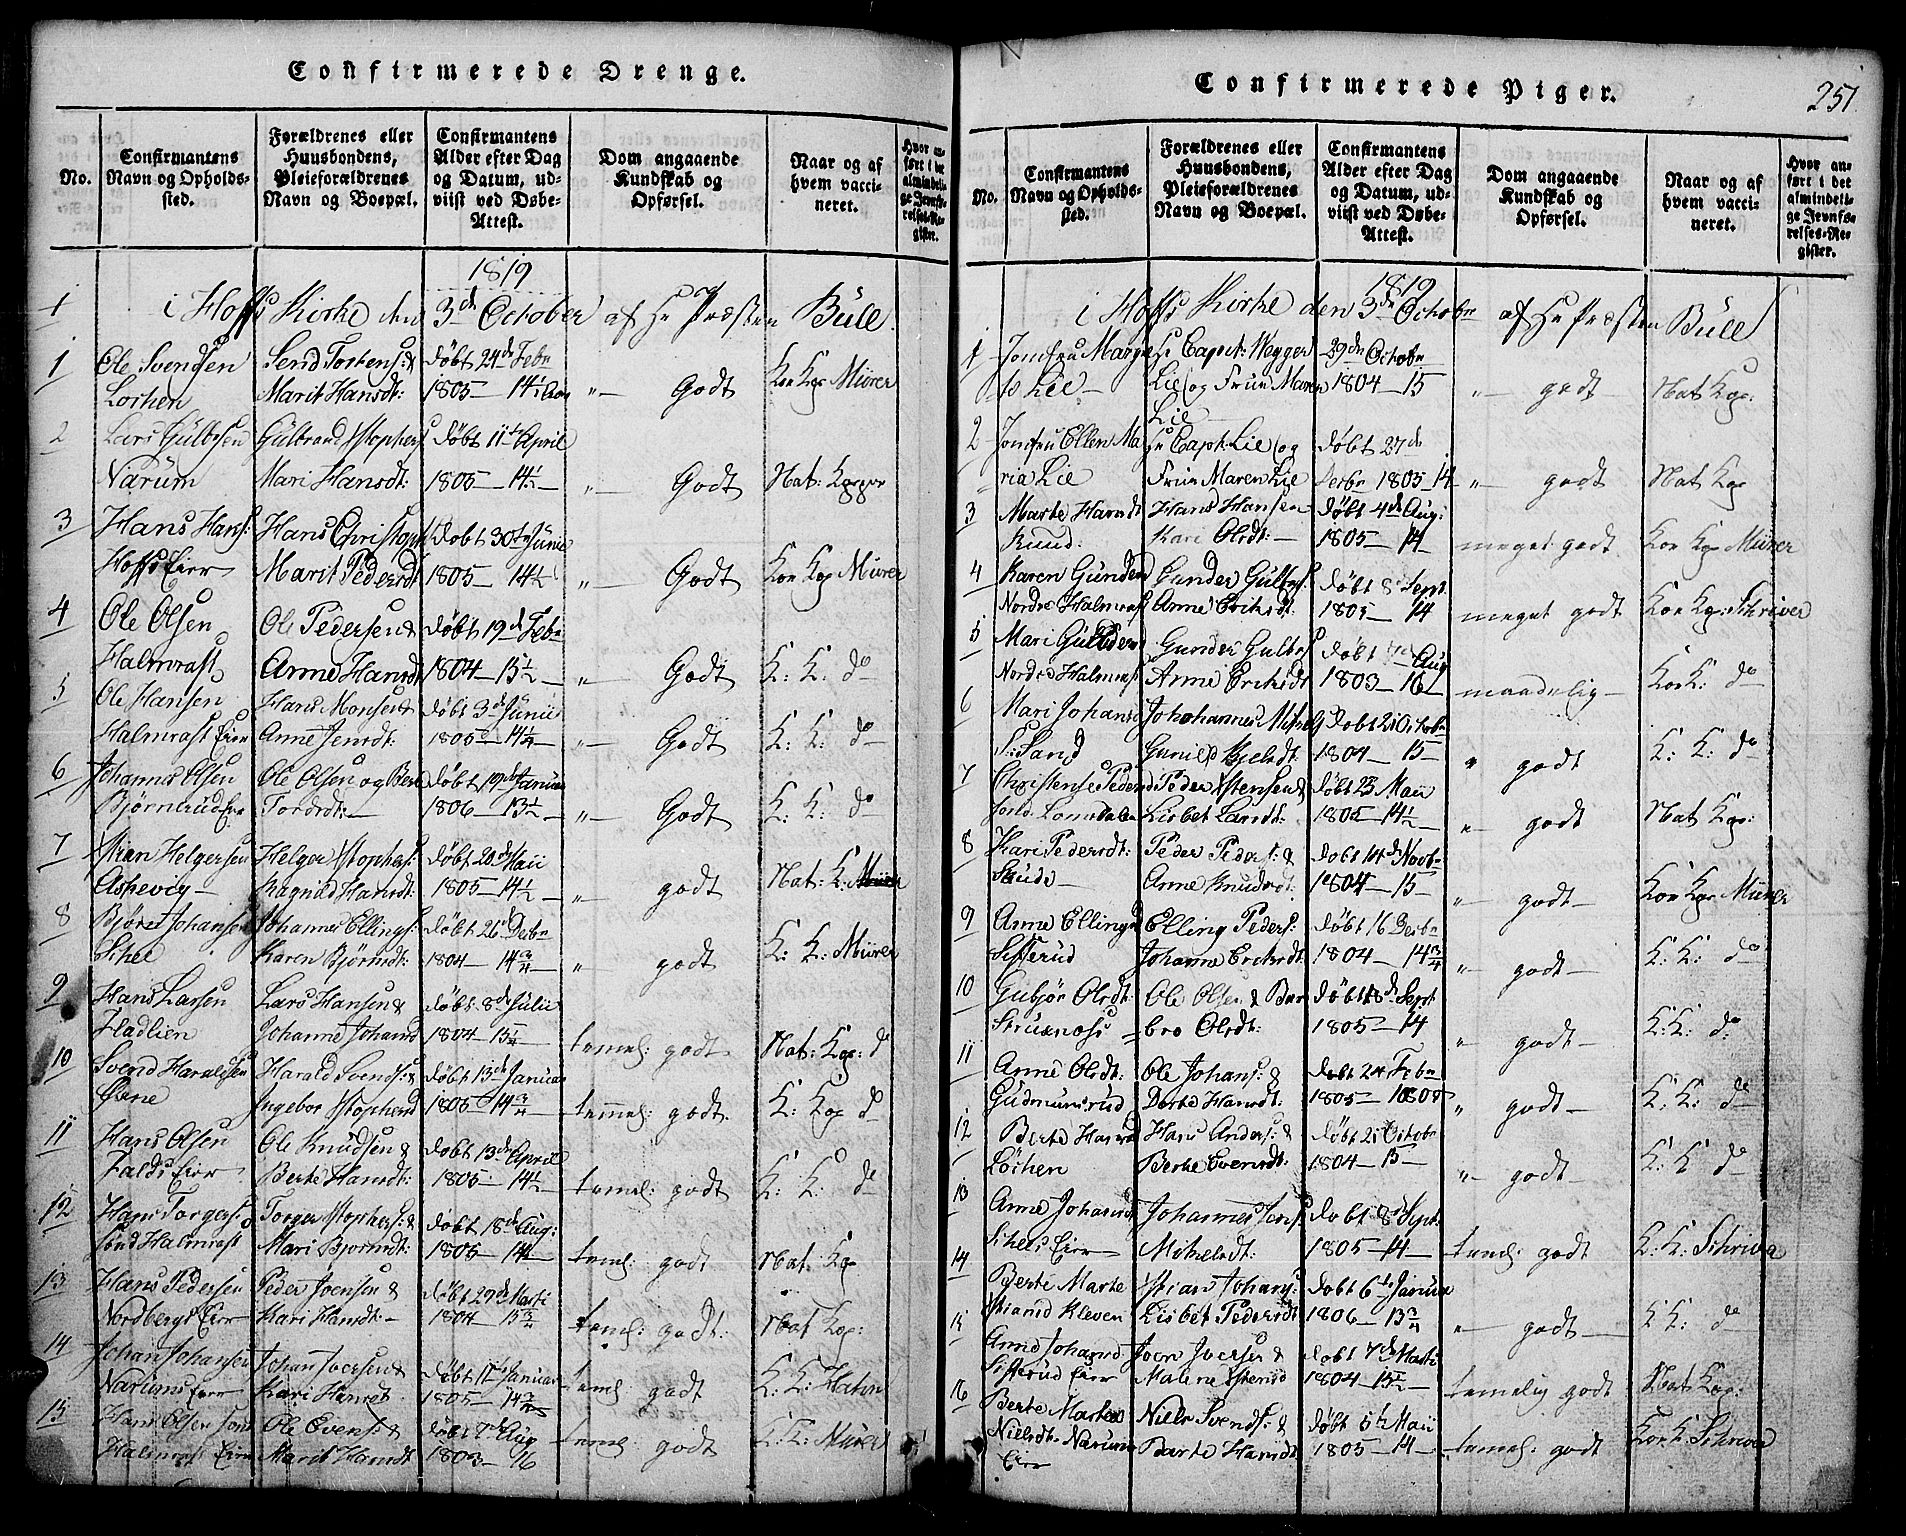 Confirmerede Drenge.
No.
Confirmantens Navn og Opholds-sted.
Forældrenes eller Huusbondens, Pleieforældrenes Navn og Boepæl.
Confirmantens Alder efter Dag og Datum, ud-viist ved Døbe-Attest.
Dom angaaende Kundskab og Opførsel.
Naar og af hvem vacci-neret.
Hvor an-ført i det almindeli-ge Jevnfø-relses-Re-gister.
1819
1 i Hoffs Kirke den 3de October af Hr Præsten Bull
1 Ole Svendsen Marit Hansdt: døbt 24de Febr 1805 — 14½ „ — Godt Kon Kop Mürer
2 Lars Gulbrsen Narum Mari Hansdt: døbt 11te April 1805 — 14½ „ — Godt Nat: Kopper
3 Hans Hans: Hoffs Eier Hans Christoph Marit Pedersdt døbt 30te Junii 1805 — 14¼ „ — Godt Kon Kop Mürer
4 Ole Olsen Halmrast Ole Pedersen & Anne Hansdt døbt 19de Febr 1804 — 15½ „ — Godt K: K: do
5 Ole Hansen Halmrast Eier Hans Monsen & Anne Jensdt: døbt 3de Junii 1805 — 14¼ „ — Godt K: K: do
6 Johannes Olsen Bjørnerud Eier Ole Olsen og Berte Tordsdt: døbt Januar 1806 — 13½ „ — Godt K: K: do
7 Stian Helgersen Aspevig Helger Stophers: Ragnild Hansdt: døbt 20de Maii 1805 — 14½ „ godt Nat: K:
8 Johansen Johannes Ellings: Karen Bjørnsdt: døbt 26 Decbr 1804 — 14¾ „ godt K: K: Mürer
9 Hans Larsen Fladlien Lars Hansen & Johanne Johansd døbt 8de Julii 1804 — 15¼ temel: godt Nat: Kop: d
10 Svend Haraldsen Harald Svends: & Ingebor Stophersd døbt 13de Januar 1805 14¾ temmel: godt K: Kop d
11 Hans Olsen Falds Eier Ole Knudsen & Berte Hansdt: døbt 13de April 1805 — 14½ temel: godt K: K: do
12 Hans Torgers: Sønd Halmrast Torger Stophers: & Mari Bjørnsdt: døbt 18de Aug: 1805 — 14 temel: godt Nat: Kop
13 Hans Pedersen Nordbergs Eier Peder Joensen & Kari Hansdt: døbt 29de Marti 1804 — 15¾ temel: godt: Nat Kop:
14 Johan Johansen Narums Eier Johan Iversen & Kari Hansdt døbt Januar 1805 — 14 temel godt K: K: Hahn
15 Hans Olsen Halmrast Eier Ole Evens: & Marit Hansdt døbt 7de Aug 1803 — 16 temel godt K: K: Mürer
Confirmerede Piger.
251
No.
Confirmantens Navn og Opholds-sted.
Forældrenes eller Huusbondens, Pleieforældrenes Navn og Boepæl.
Confirmantens Alder efter Dag og Datum, ud-viist ved Døbe-Attest.
Dom angaaende Kundskab og Opførsel.
Naar og af hvem vacci-neret.
Hvor an-ført i det almindeli-ge Jevnfø-relses-Re-gister.
1819
i Hoffs Kirke den 3de Octobr af Hr Præsten Bull
1 Jomfru Lie — Hr Capit: Wegger Lie og Fruu Maren Lie 29de Octobr 1804 — 15 „ — godt Nat Kop:
2 Jomfru Ellen Maria Lie Hr Capt: Lie og Fruu Maren Lie døbt 27de Decbr 1805 14 „ godt Nat Kop
3 Marte Hansdt Rund: Hans Hansen Kari Olsdt: — døbt 4de Aug: 1805 — 14 meget godt Kon Kop Mürer
4 Karen Gundersd Nordre Halmrast Gunder Gulbrs: Anne Ericksdt: døbt 8 Sept. 1805 — 14 meget godt Kon Kop: Schriver
5 Mari Nordre Halmrast Gunder Gulbrs Anne Ericksdt døbt Aug 1803 — 16 maadelig — Kon K: do
6 Mari Johansd S: Sand Johannes Mikels Gunild Kjelsdt: døbt 21 Octobr 1804 — 15 — „ godt K: K: do
7 Christense Pedersd Lomsdalen Peder Stensen & Lisbet Larsdt: døbt 23 Maii 1805 — 14½ „ godt Nat Kop:
8 Kari Pedersdt: Peder Peders: & Anne Knudsdt: døbt 14de Novbr 1804 — 15 „ godt — Kon Kop Mürer
9 Anne Ellingsd Sifferud Elling Peders: Johanne Ericksdt døbt 16 Decbr 1804 — 14¾ „ godt — K: K: do
10 Gubjør Olsdt: Struxnæss Ole Olsen & Barbro Olsdt: døbt 18de Sept 1805 — 14 „ godt — K: K: do
11 Anne Olsdt: Gudmunsrud Ole Johans: & Dorte Hansdt: døbt 24 Febr 1805 — „ godt — K: K: do
12 Berte Hansd Løchen Hans Anders: & Berte Evensdt: døbt 21 Octobr 1804 — 15 — „ godt K: K do
13 Anne Johansdt Schees Eier Johannes Jens: Mikelsdt: døbt 8de Sept: 1805 — 14 — temel: godt K: K: Schriver
14 Berte Marte Stiansd Kleven Stian Johans: Lisbet Pedersdt døbt 6te Januar 1806 — 13¾ „ — godt — K: K: do
15 Anne Johansd Sifferud Eier Joen Iversen & Malene Stensd døbt 7de Marti 1804 — 15½ — temelig godt Nat Kop:
16 Berte Marte Nielsdt: Narums Eier Niels Svends: & Barte Hansdt døbt 5te Maii 1805 — 14 — temel: godt Kon K: Schriver